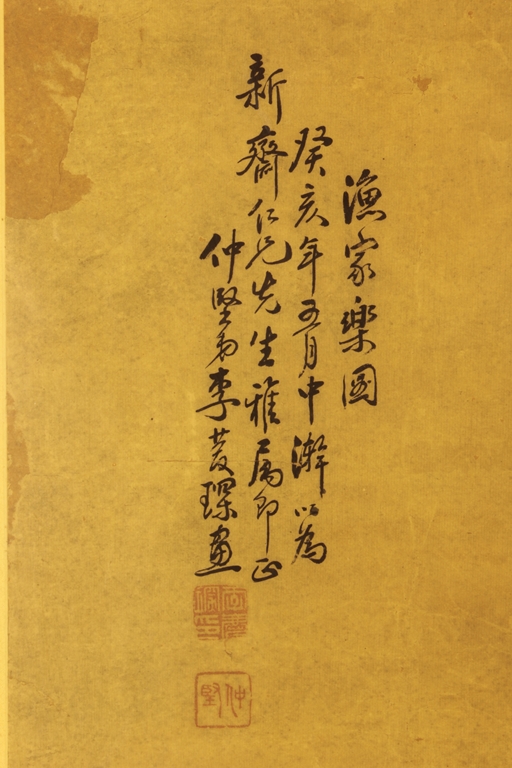 漁家樂圖
癸亥年五月中澣以為
新齋仁兄先生雅属即正
仲堅弟李慶璪畫
仲堅